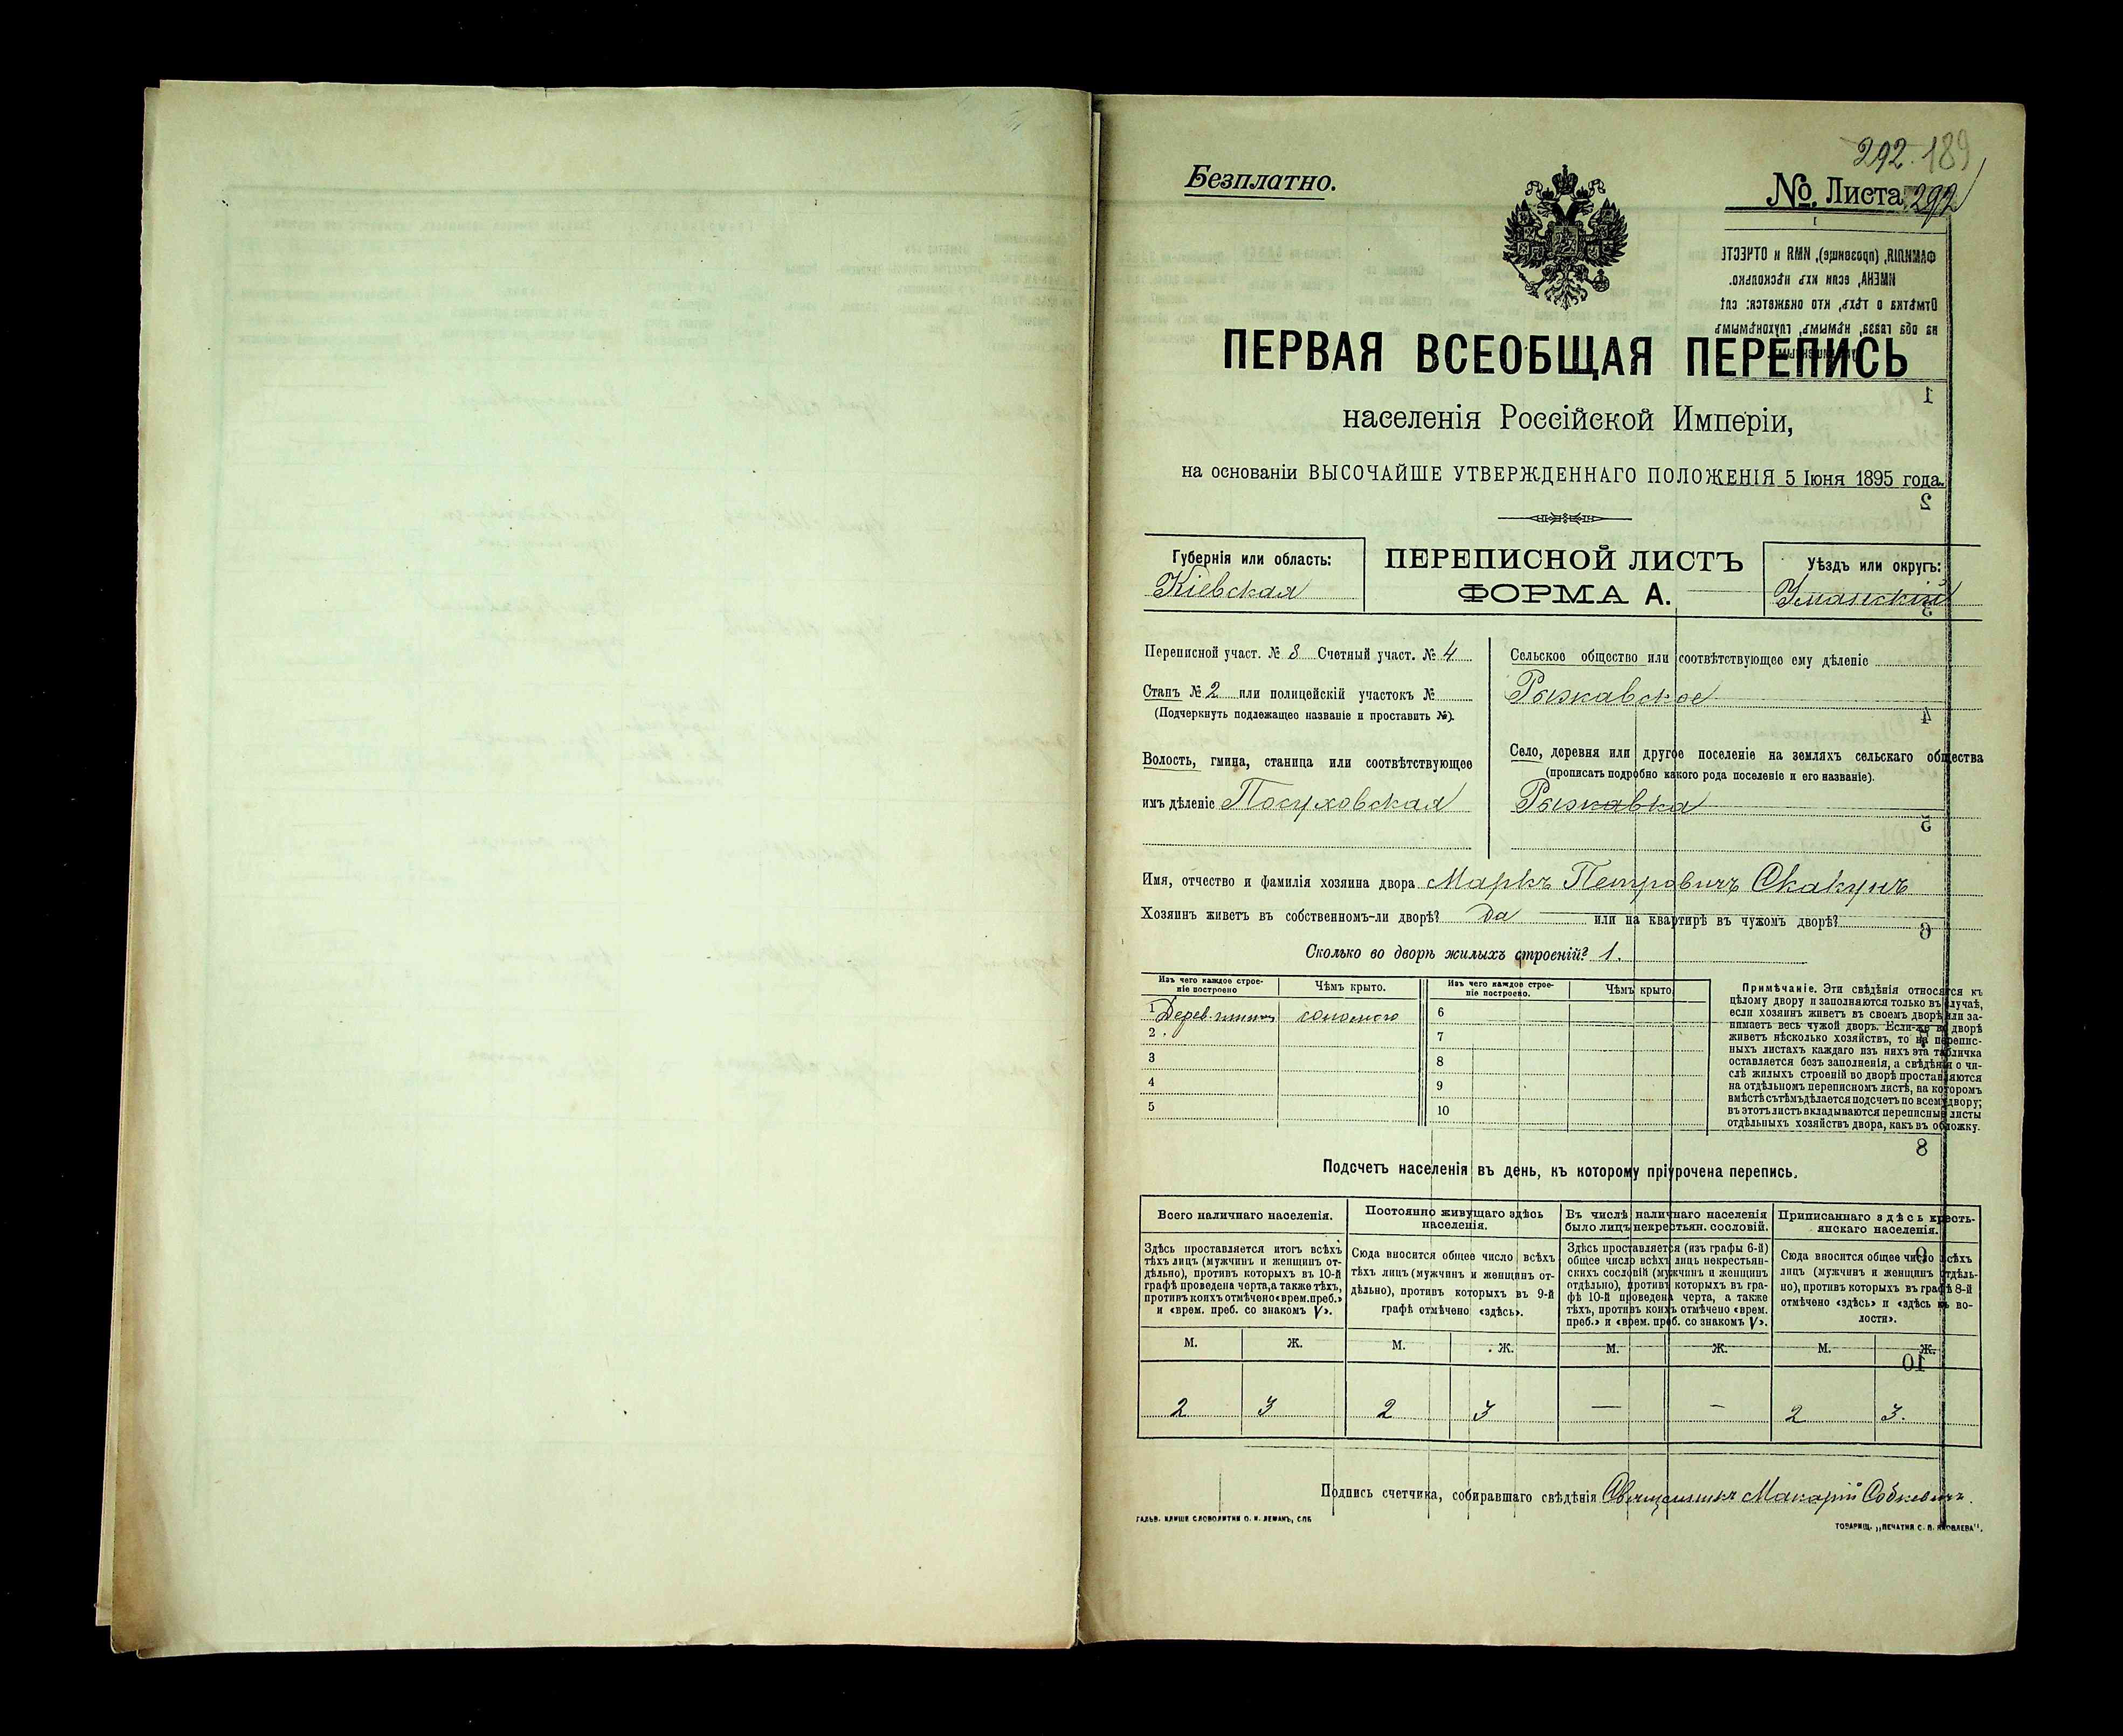 292. 189
Безплатно.
№ Листа 292
ПЕРВАЯ ВСЕОБЩАЯ ПЕРЕПИСЬ
населенія Россійской Имперіи,
на основаніи ВЫСОЧАЙШЕ УТВЕРЖДЕННАГО ПОЛОЖЕНІЯ 5 Іюня 1895 года.
Губернія или область:
Кіевская
ПЕРЕПИСНОЙ ЛИСТЪ
ФОРМА А.
Уѣздъ или округъ:
Уманскій
Переписной участ. № 8 Счетный участ. № 4
Станъ № 2 или полицейскій участокъ №
(Подчеркнуть подлежащее названіе и проставить №).
Волость, гмина, станица или соотвѣтствующее
имъ дѣленіе Посуховская
Сельское общество или соотвѣтствующее ему дѣленіе
Рыжавское
Село, деревня или другое поселеніе на земляхъ сельскаго общества
(прописать подробно какого рода поселеніе и его названіе).
Рыжавка
Имя, отчество и фамилія хозяина двора Маркъ Петровичъ Скакунъ
Хозяинъ живетъ въ собственномъ-ли дворѣ? Да или на квартирѣ въ чужомъ дворѣ?
Сколько во дворѣ жилыхъ строеній? 1.
Изъ чего каждое строе-
ніе построено
Чѣмъ крыто.
Изъ чего каждое строе-
ніе построено.
Чѣмъ крыто
1 соломою
2
3
4
5
6
7
8
9
10
Примѣчаніе. Эти свѣдѣнія относятся къ
цѣлому двору и заполняются только въ случаѣ,
если хозяинъ живетъ въ своемъ дворѣ или за-
нимаетъ весь чужой дворъ. Если-же во дворѣ
живетъ нѣсколько хозяйствъ, то на перепис-
ныхъ листахъ каждаго изъ нихъ эта табличка
оставляется безъ заполненія, а свѣдѣнія о чи-
слѣ жилыхъ строеній во дворѣ проставляются
на отдѣльномъ переписномъ листѣ, на которомъ
вмѣстѣ съ тѣмъ дѣлается подсчетъ по всему двору;
въ этотъ листъ вкладываются переписные листы
отдѣльныхъ хозяйствъ двора, какъ въ обложку.
Подсчетъ населенія въ день, къ которому пріурочена перепись.
Всего наличнаго населенія.
Здѣсь проставляется итогъ всѣхъ
тѣхъ лицъ (мужчинъ и женщинъ от-
дѣльно), противъ которыхъ въ 10-й
графѣ проведена черта, а также тѣхъ,
противъ коихъ отмѣчено «врем. преб.»
и «врем. преб. со знакомъ V».
Постоянно живущаго здѣсь
населенія.
Сюда вносится общее число всѣхъ
тѣхъ лицъ (мужчинъ и женщинъ от-
дѣльно), противъ которыхъ въ 9-й
графѣ отмѣчено «здѣсь».
Въ числѣ наличнаго населенія
было лицъ некрестьян. сословій.
Здѣсь проставляется (изъ графы 6-й)
общее число всѣхъ лицъ некрестьян-
скихъ сословій (мужчинъ и женщинъ
отдѣльно), противъ которыхъ въ гра-
фѣ 10-й проведена черта, а также
тѣхъ, противъ коихъ отмѣчено «врем.
преб.» и «врем. преб. со знакомъ V».
Приписаннаго здѣсь кресть-
янскаго населенія.
Сюда вносится общее число всѣхъ
лицъ (мужчинъ и женщинъ отдѣль-
но), противъ которыхъ въ графѣ 8-й
отмѣчено «здѣсь» и «здѣсь въ во-
лости».
М. Ж. М. Ж. М. Ж. М. Ж.
2 3 2 3 — — 2 3.
Подпись счетчика, собиравшаго свѣдѣнія Священникъ Макарій Собкевичъ.
ГАЛЬВ. КЛИШЕ СЛОВОЛИТНИ О. И. ЛЕМАНЪ, СПБ
ТОВАРИЩ. „ПЕЧАТНЯ С. П. ЯКОВЛЕВА“.